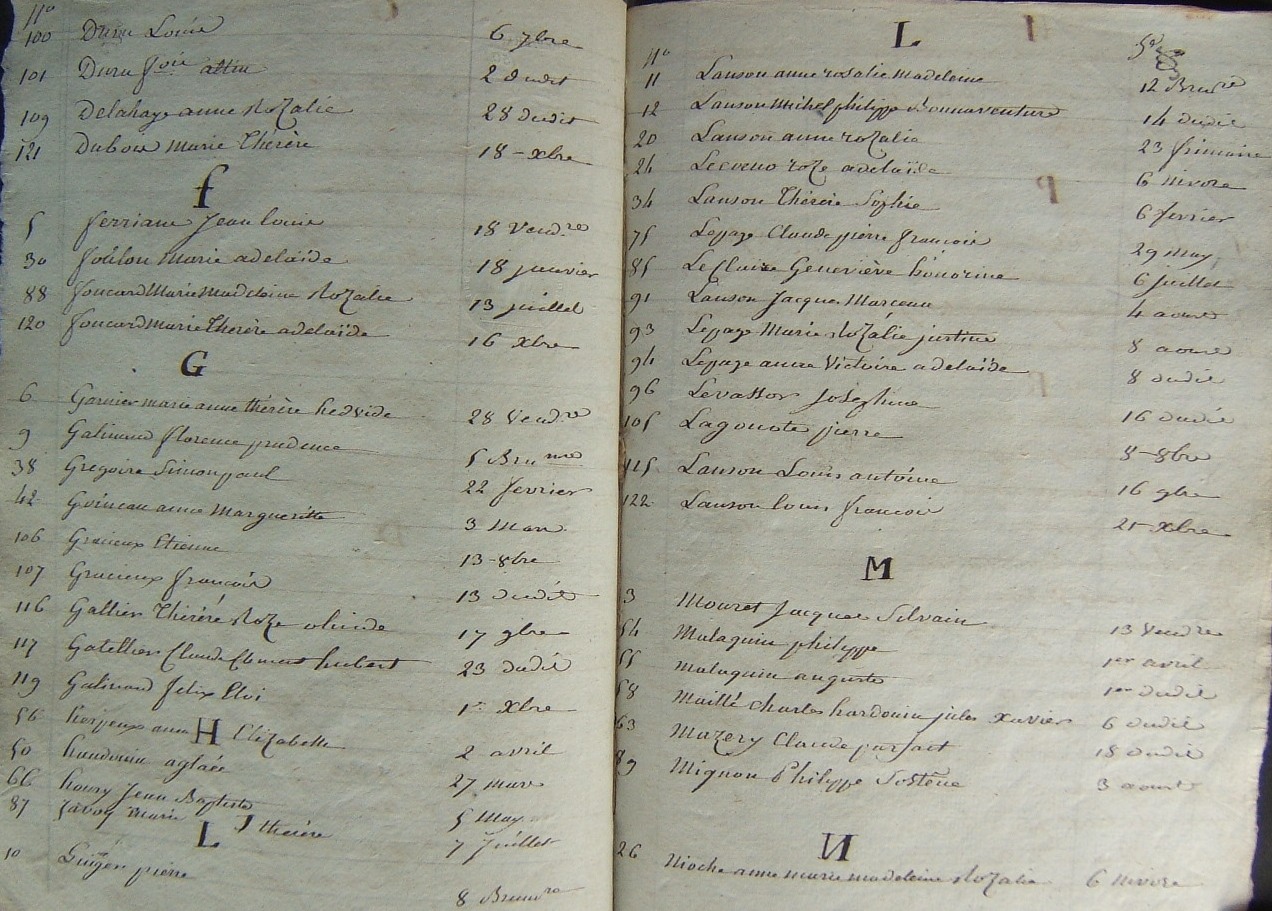 nº
100 Duru Louis 6 7bre
101 Duru dudit
109 Delahaye anne Rozalie 28 dudit
121 Dubois marie Thérèse 18 - Xbre
f
5 ferriane Jean louis 18 Vendre
30 foulon Marie adelaïde 18 janvier
88 foucard Marie Madeleine Rozalie 13 juillet
120 foucard marie Thérèse adelaïde 16 Xbre
G
6 Garnier marie anne thérèse hedvide 28 Vendre
9 Galineaud florence prudence 5 Brumre
38 Gregoire Simon paul 22 fevrier
42 Goineau anne Margueritte 3 Mars
106 Gracieux Etienne 13 - 8bre
107 Gracieux françois 13 dudit
116 Gallier Thérèse Roze 17 9bre
117 Gatellier Claude Clement hubert 23 dudit
119 Galineaud felix Eloi 1er Xbre
56 anne Elizabette 2 avril
H
50 haudouin aglaée 27 mars
66 houry Jean Baptiste 5 May
87 Savoy Marie thérèse 7 Juillet
J
L
10 pierre 8 Brumre
L
nº
11 Lanson anne rosalie Madeleine 12 Brure
12 Lanson Mihel philippe Bonnaventure 14 dudit
20 Lanson anne rozalie 23 frimaire
24 roze adelaïde 6 nivose
34 Lanson Thérèse Sophie 6 fevrier
75 Lepage Claude pierre françois 29 may
85 Leclaire Geneviève honorine 6 juillet
91 Lanson Jacques Marceau 4 aoust
93 Lepage Marie Rozalie justine 8 aoust
94 Lepage anne Victoire adelaïde 8 dudit
96 Levassor Joséphine 16 dudit
105 Lagoutte pierre 8 - 8bre
115 Lanson Louis antoine 16 9bre
122 Lanson louis françois 25 - Xbre
M
3 Mouret Jacques Silvain 13 Vendre
54 Malaquin philippe 1er avril
55 Malaquin auguste 1er dudit
58 Maillé Charles hardouin jules Xavier 6 dudit
63 Mazery Claude parfait 18 dudit
89 Mignon Philippe Sostène 3 aoust
N
26 Nioche anne marie madeleine Rozalie 6 nivose